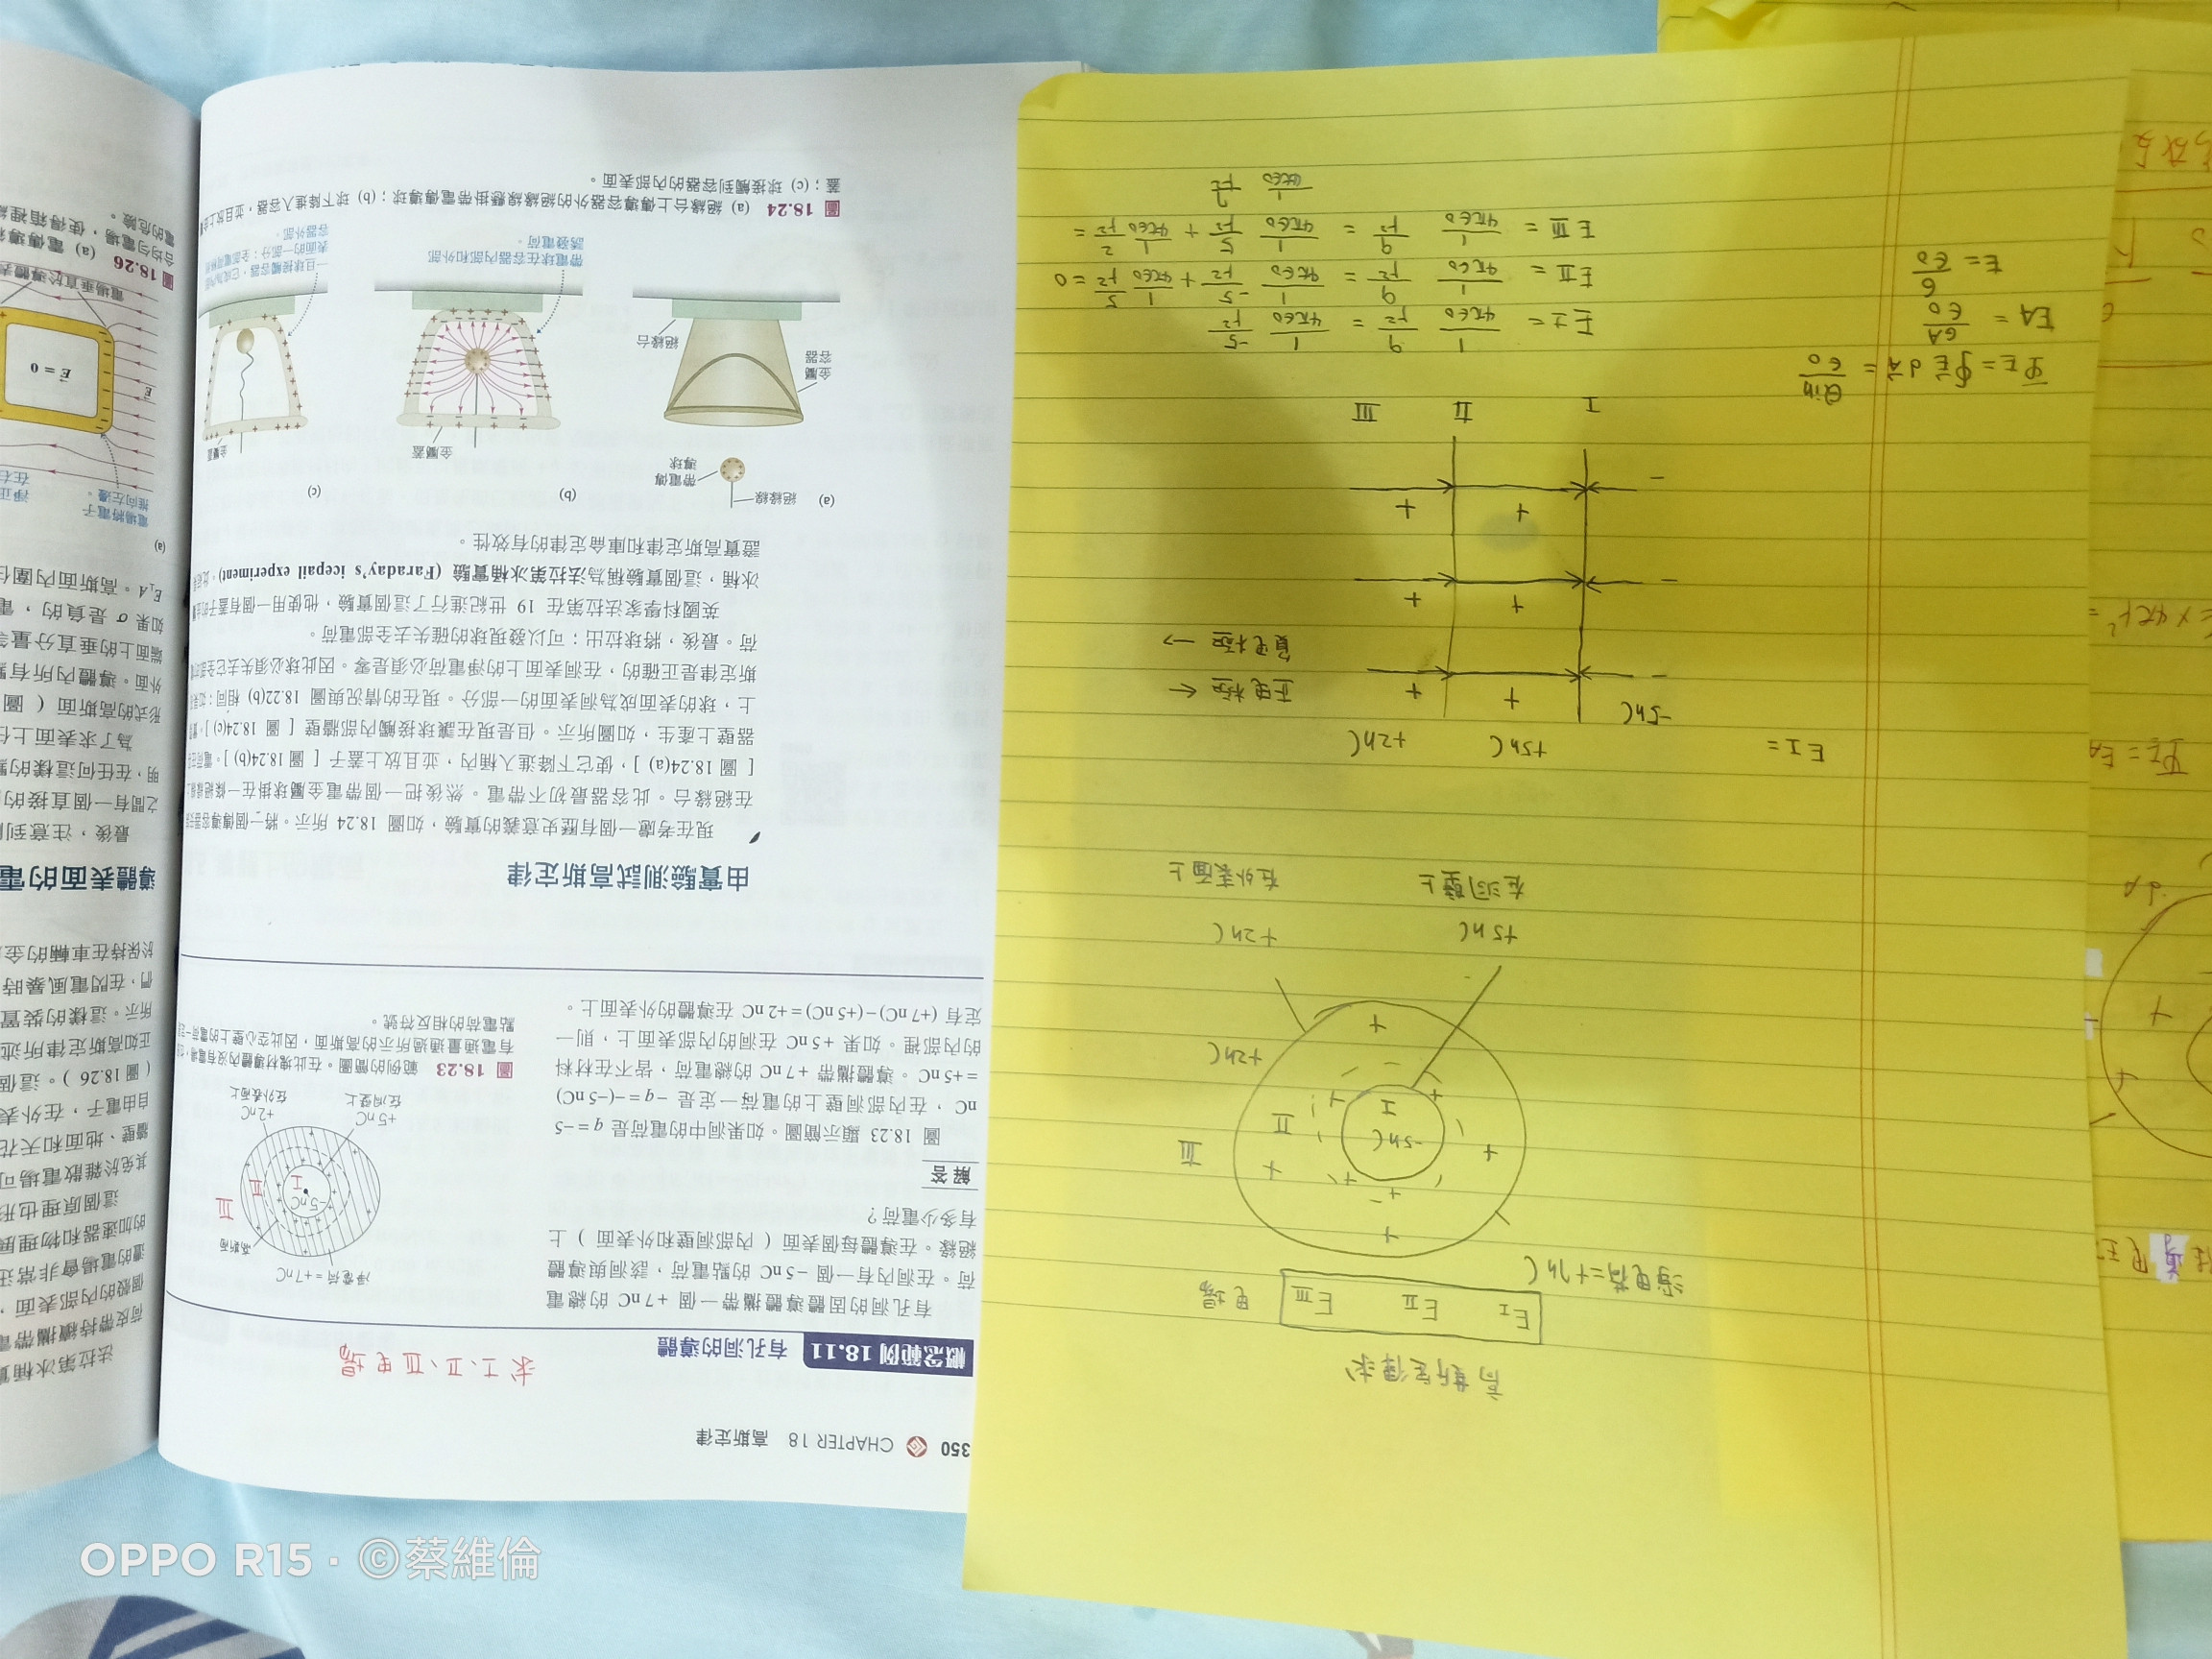 350 CHAPTER 18 高斯定律
求 I、II、III 電場
概念範例 18.11 有孔洞的導體
有孔洞的固體導體攜帶一個 +7 nC 的總電
荷。在洞內有一個 −5 nC 的點電荷,該洞與導體
絕緣。在導體每個表面(內部洞壁和外表面)上
有多少電荷?
解答
圖 18.23 顯示簡圖。如果洞中的電荷是 q = −5
nC,在內部洞壁上的電荷一定是 −q = −(−5 nC)
= +5 nC。導體攜帶 +7 nC 的總電荷,皆不在材料
的內部裡。如果 +5 nC 在洞的內部表面上,則一
定有 (+7 nC) − (+5 nC) = +2 nC 在導體的外表面上。
淨電荷 = +7 nC
高斯面
−5 nC
I
II
III
+5 nC
在洞壁上
+2 nC
在外表面上
圖 18.23 範例的簡圖。在此塊材導體內沒有電場,
有電通量通過所示的高斯面,因此空心壁上的電荷
點電荷的相反符號。
由實驗測試高斯定律
現在考慮一個有歷史意義的實驗,如圖 18.24 所示。將一個傳導容器
在絕緣台。此容器最初不帶電。然後把一個帶電金屬球掛在一條絕緣
[圖 18.24(a)],使它下降進入桶內,並且放上蓋子 [圖 18.24(b)]。電荷
器壁上產生,如圖所示。但是現在讓球接觸內部牆壁 [圖 18.24(c)]。
上,球的表面成為洞表面的一部分。現在的情況與圖 18.22(b) 相同;
斯定律是正確的,在洞表面上的淨電荷必須是零。因此球必須失去它全部
荷。最後,將球拉出;可以發現球的確失去全部電荷。
英國科學家法拉第在 19 世紀進行了這個實驗,他使用一個有蓋子的
冰桶,這個實驗稱為法拉第冰桶實驗 (Faraday's icepail experiment)。
證實高斯定律和庫侖定律的有效性。
(a)
絕緣線
帶電傳
導球
金屬
容器
絕緣台
(b)
金屬蓋
帶電球在容器內部和外部
誘發電荷。
(c)
金屬蓋
一旦球接觸容器,它成為內部
表面的一部分;全部電荷移到
容器外部。
圖 18.24 (a) 絕緣台上傳導容器外的絕緣線懸掛帶電傳導球;(b) 球下降進入容器,並且放上
蓋;(c) 球接觸到容器的內部表面。
法拉第冰桶實
荷皮帶持續攜帶電
個殼的內部表面,
遺的電場會非常迅
的加速器和物理展
這個原理也形
其免於雜散電場可
牆壁、地面和天花
自由電子,在外表
(圖 18.26)。這個
正如高斯定律所述
所示。這樣的裝置
們,在閃電風暴時
於保持在車輛的金
導體表面的電
最後,注意到
之間有一個直接的
明,在任何這樣的
為了求表面上任
形式的高斯面(圖
外面。導體內所有
端面上的垂直分量
如果 σ 是負的,電
E⊥A。高斯面內圍住
(a)
電場將電子
推向左邊。
淨正
在右
E
E = 0
電場垂直於導體表
圖 18.26 (a) 電傳導
合均勻電場,使得箱裡
電的危險。
高斯定律求
EI EII EIII 電場
淨電荷=+7nC
−5nC
I
II
III
+2nC
+5nC
在洞壁上
+2nC
在外表面上
EI =
−5nC
+5nC
+2nC
正電極 ←
負電極 →
I II III
ΦE = ∮E dA = Qin/ε0
EA = σA/ε0
E = σ/ε0
EI = 1/4πε0 q/r² = 1/4πε0 −5/r²
EII = 1/4πε0 q/r² = 1/4πε0 −5/r² + 1/4πε0 5/r² = 0
EIII = 1/4πε0 q/r² = 1/4πε0 5/r² + 1/4πε0 2/r² =
1/4πε0 7/r²
OPPO R15 · ©蔡維倫